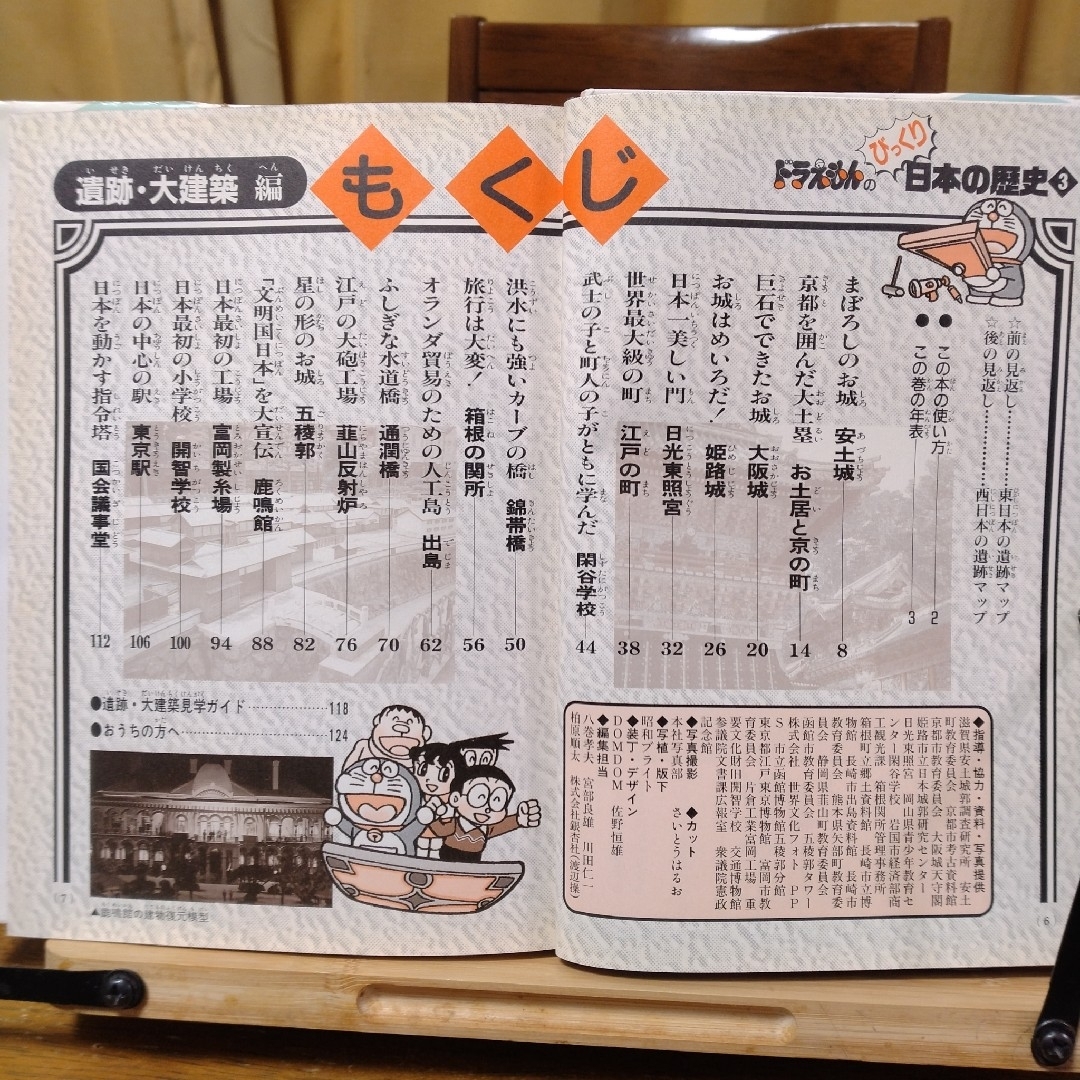 ドラえもんのびっくり日本の歴史3
もくじ
遺跡・大建築編
☆前の見返し…………東日本の遺跡マップ
☆後の見返し…………西日本の遺跡マップ
●この本の使い方 2
●この巻の年表 3
まぼろしのお城 安土城 8
京都を囲んだ大土塁 お土居と京の町 14
巨石でできたお城 大阪城 20
お城はめいろだ! 姫路城 26
日本一美しい門 日光東照宮 32
世界最大級の町 江戸の町 38
武士の子と町人の子がともに学んだ 閑谷学校 44
洪水にも強いカーブの橋 錦帯橋 50
旅行は大変! 箱根の関所 56
オランダ貿易のための人工島 出島 62
ふしぎな水道橋 通潤橋 70
江戸の大砲工場 韮山反射炉 76
星の形のお城 五稜郭 82
「文明国日本」を大宣伝 鹿鳴館 88
日本最初の工場 富岡製糸場 94
日本最初の小学校 開智学校 100
日本の中心の駅 東京駅 106
日本を動かす指令塔 国会議事堂 112
●遺跡・大建築見学ガイド…………118
●おうちの方へ…………124
▲鹿鳴館の建物復元模型
◆指導・協力・資料・写真提供
滋賀県安土城郭調査研究所 安土
町教育委員会 京都市考古資料館
京都市教育委員会 大阪城天守閣
姫路市立日本城郭研究センター
日光東照宮 岡山県青少年教育セ
ンター閑谷学校 岩国市経済部商
工観光課 箱根関所管理事務所
箱根町立郷土資料館 長崎市立博
物館 長崎市出島資料館 長崎市
教育委員会 熊本県矢部町教育委
員会 静岡県韮山町教育委員会
函館市教育委員会 五稜郭タワー
株式会社 世界文化フォト PP
S 市立函館博物館五稜郭分館
東京都江戸東京博物館 富岡市教
育委員会 片倉工業富岡工場 重
要文化財旧開智学校 交通博物館
参議院文書課広報室 衆議院憲政
記念館
◆写真撮影 ◆カット
本社写真部 さいとうはるお
◆写植・版下
昭和ブライト
◆装丁・デザイン
DOMDOM 佐野恒雄
◆編集担当
八巻孝夫 宮部良雄 川田仁一
柏原順太 株式会社銀杏社(渡辺操)
6
7